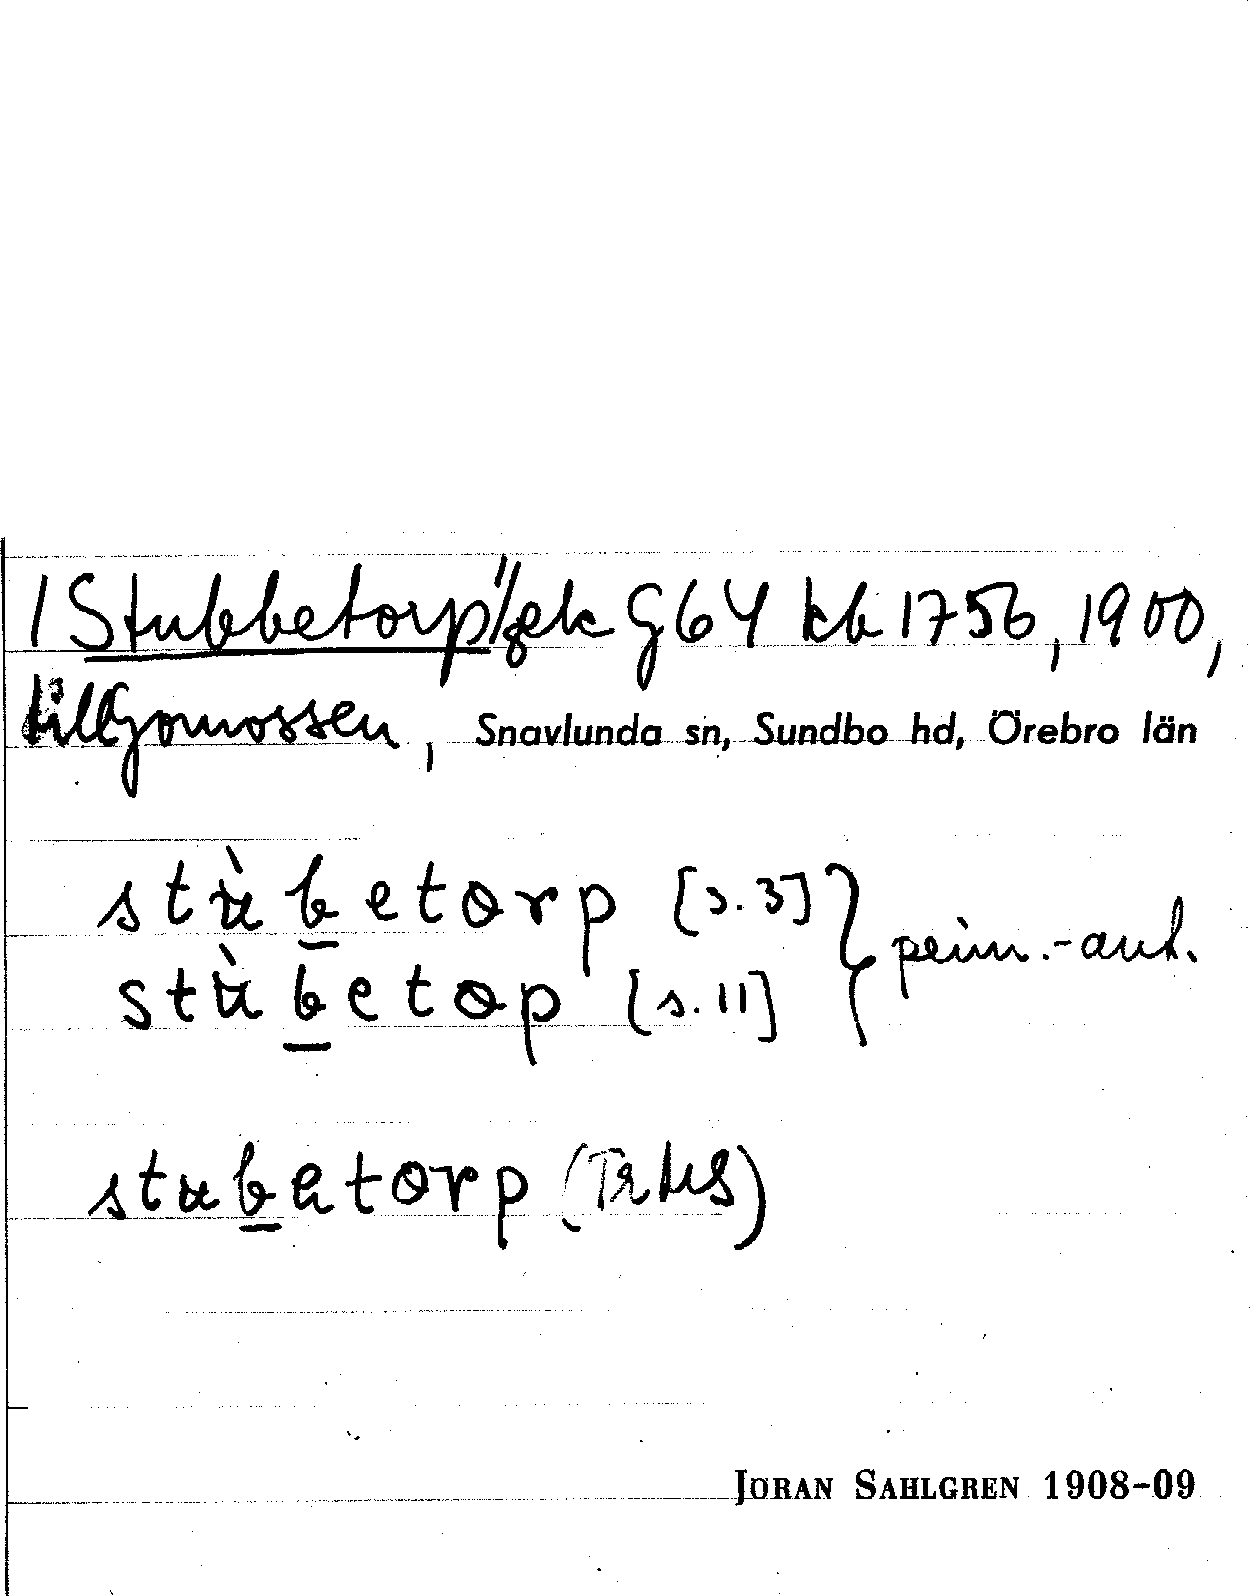 / Stubbetorp"/gek G64 kb 1756, 1900,
till Gomossen, Snavlunda sn, Sundbo hd, Örebro län
stu̇̀b̲etɵrp [s. 3]
stu̇̀b̲etɵp [s. 11] } peim.-ant.
stub̲etɵrp (TrHS)
JÖRAN SAHLGREN 1908-09